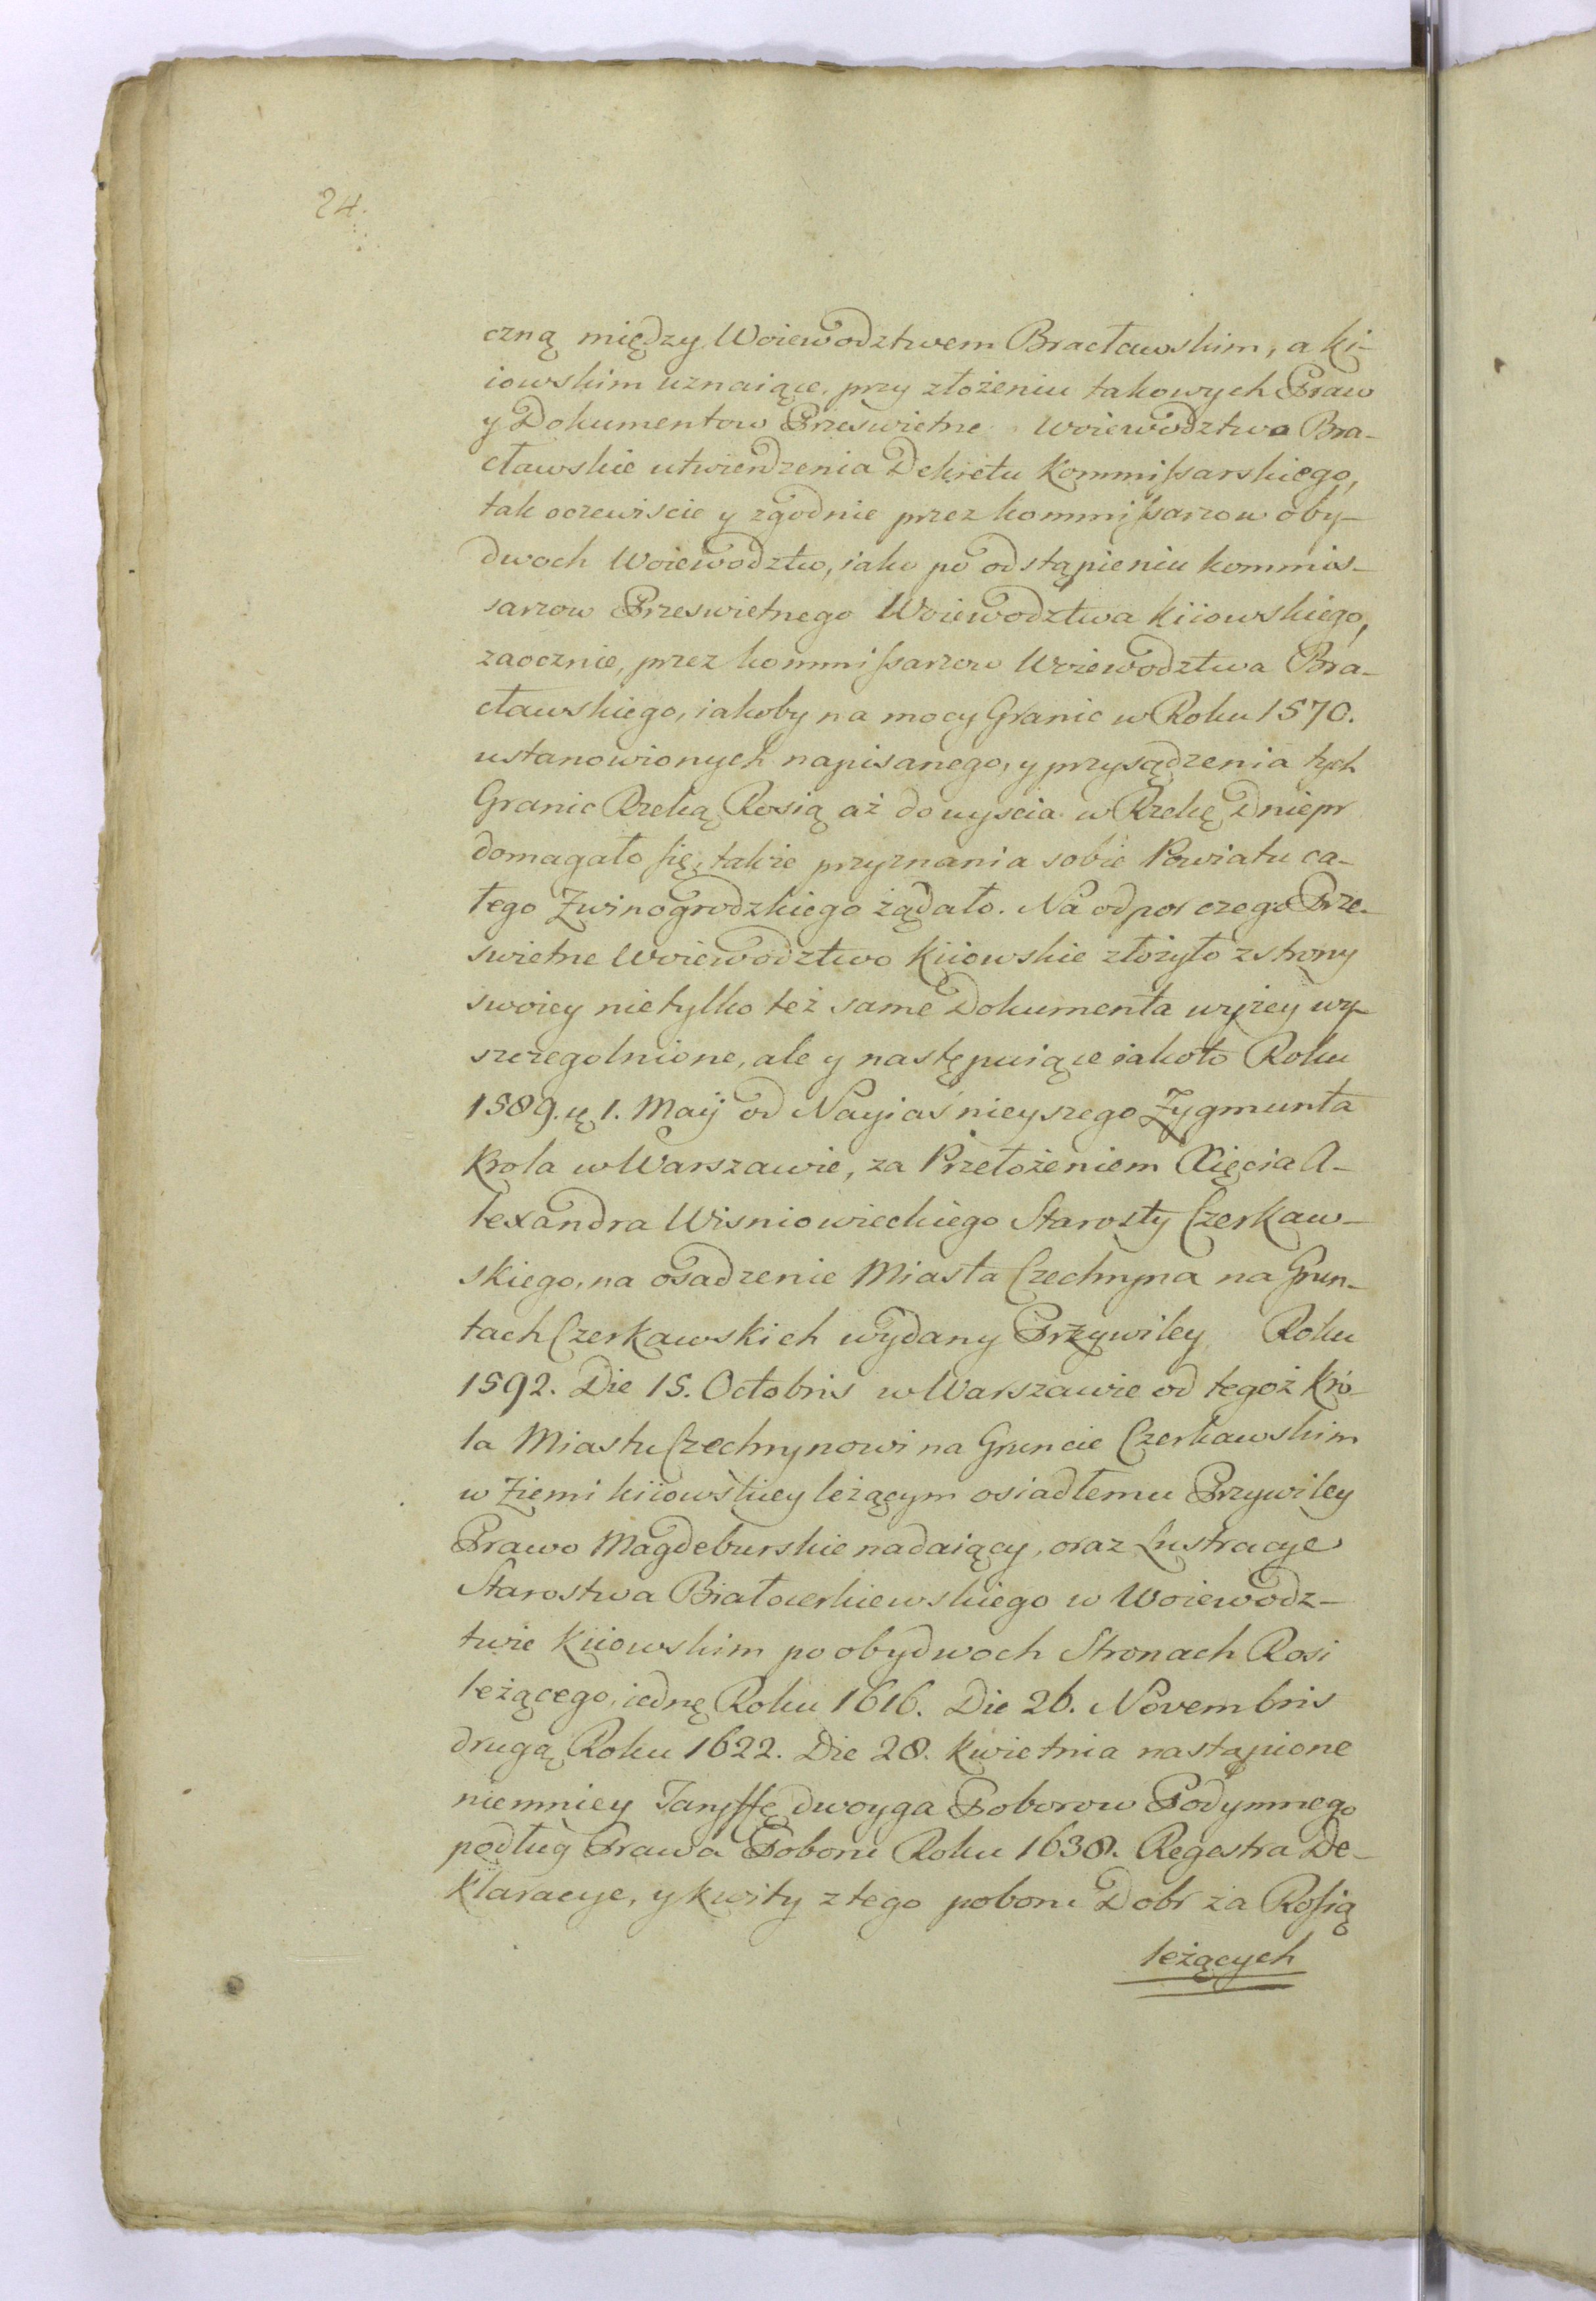 24.
czną między Woiewodztwem Bracławskim, a Ki-
iowskim uznaiące, przy złożeniu takowych Praw
y Dokumentow Prześwietne Woiewodztwo Bra-
cławskie utwierdzenia Dekretu Kommissarskiego,
tak oczewiscie y zgodnie przez kommissarzow oby-
dwoch Woiewodztw, iako po odstąpieniu kommis-
sarzow Przeswietnego Woiewodztwa Kiiowskiego,
zaocznie, przez kommissarzow Woiewodztwa Bra-
cławskiego, iakoby na mocy Granic w Roku 1570.
ustanowionych napisanego, y przysądzenia tych
Granic Rzeką Rosią aż do uyscia w Rzekę Dniepr
domagało się, takie przyznania sobie Powiatu ca-
łego Zwinogrodzkiego żądało. Na odpor czego Prze-
swietne Woiewodztwo Kiiowskie złożyło z strony
swoiey nietylko też same Dokumenta wyżey wy-
szczegolnione, ale y następuiące iakoto Roku
1589. 1. Maij od Nayiaśnieyszego Zygmunta
Krola w Warszawie, za Przełożeniem Xięcia A-
lexandra Wisniowieckiego Starosty Czerkaw-
skiego, na osadzenie Miasta Czechryna na Grun-
tach Czerkawskich wydany Przywiley Roku
1592. Die 15. Octobris w Warszawie od tegoż Kró-
la Miastu Czechrynowi na Gruncie Czerkawskim
w Ziemi kiiowskiey leżącym osiadłemu Przywiley
Prawo Magdeburskie nadaiący, oraz Lustracye
Starostwa Białocerkiewskiego w Woiewodz-
twie Kiiowskim po obydwoch Stronach Rosi
leżącego, iednę Roku 1616. Die 26. Novembris
drugą Roku 1622. Die 28. Kwietnia nastąpione
niemniey Taryffę dwoyga Poborow Podymnego
podług Prawa Poboru Roku 1638. Regestra De-
klaracye, y kwity z tego poboru Dobr za Rosią
leżących